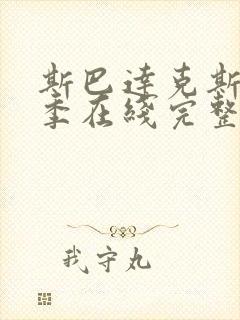 斯巴達克斯
季在綫完整
我守丸